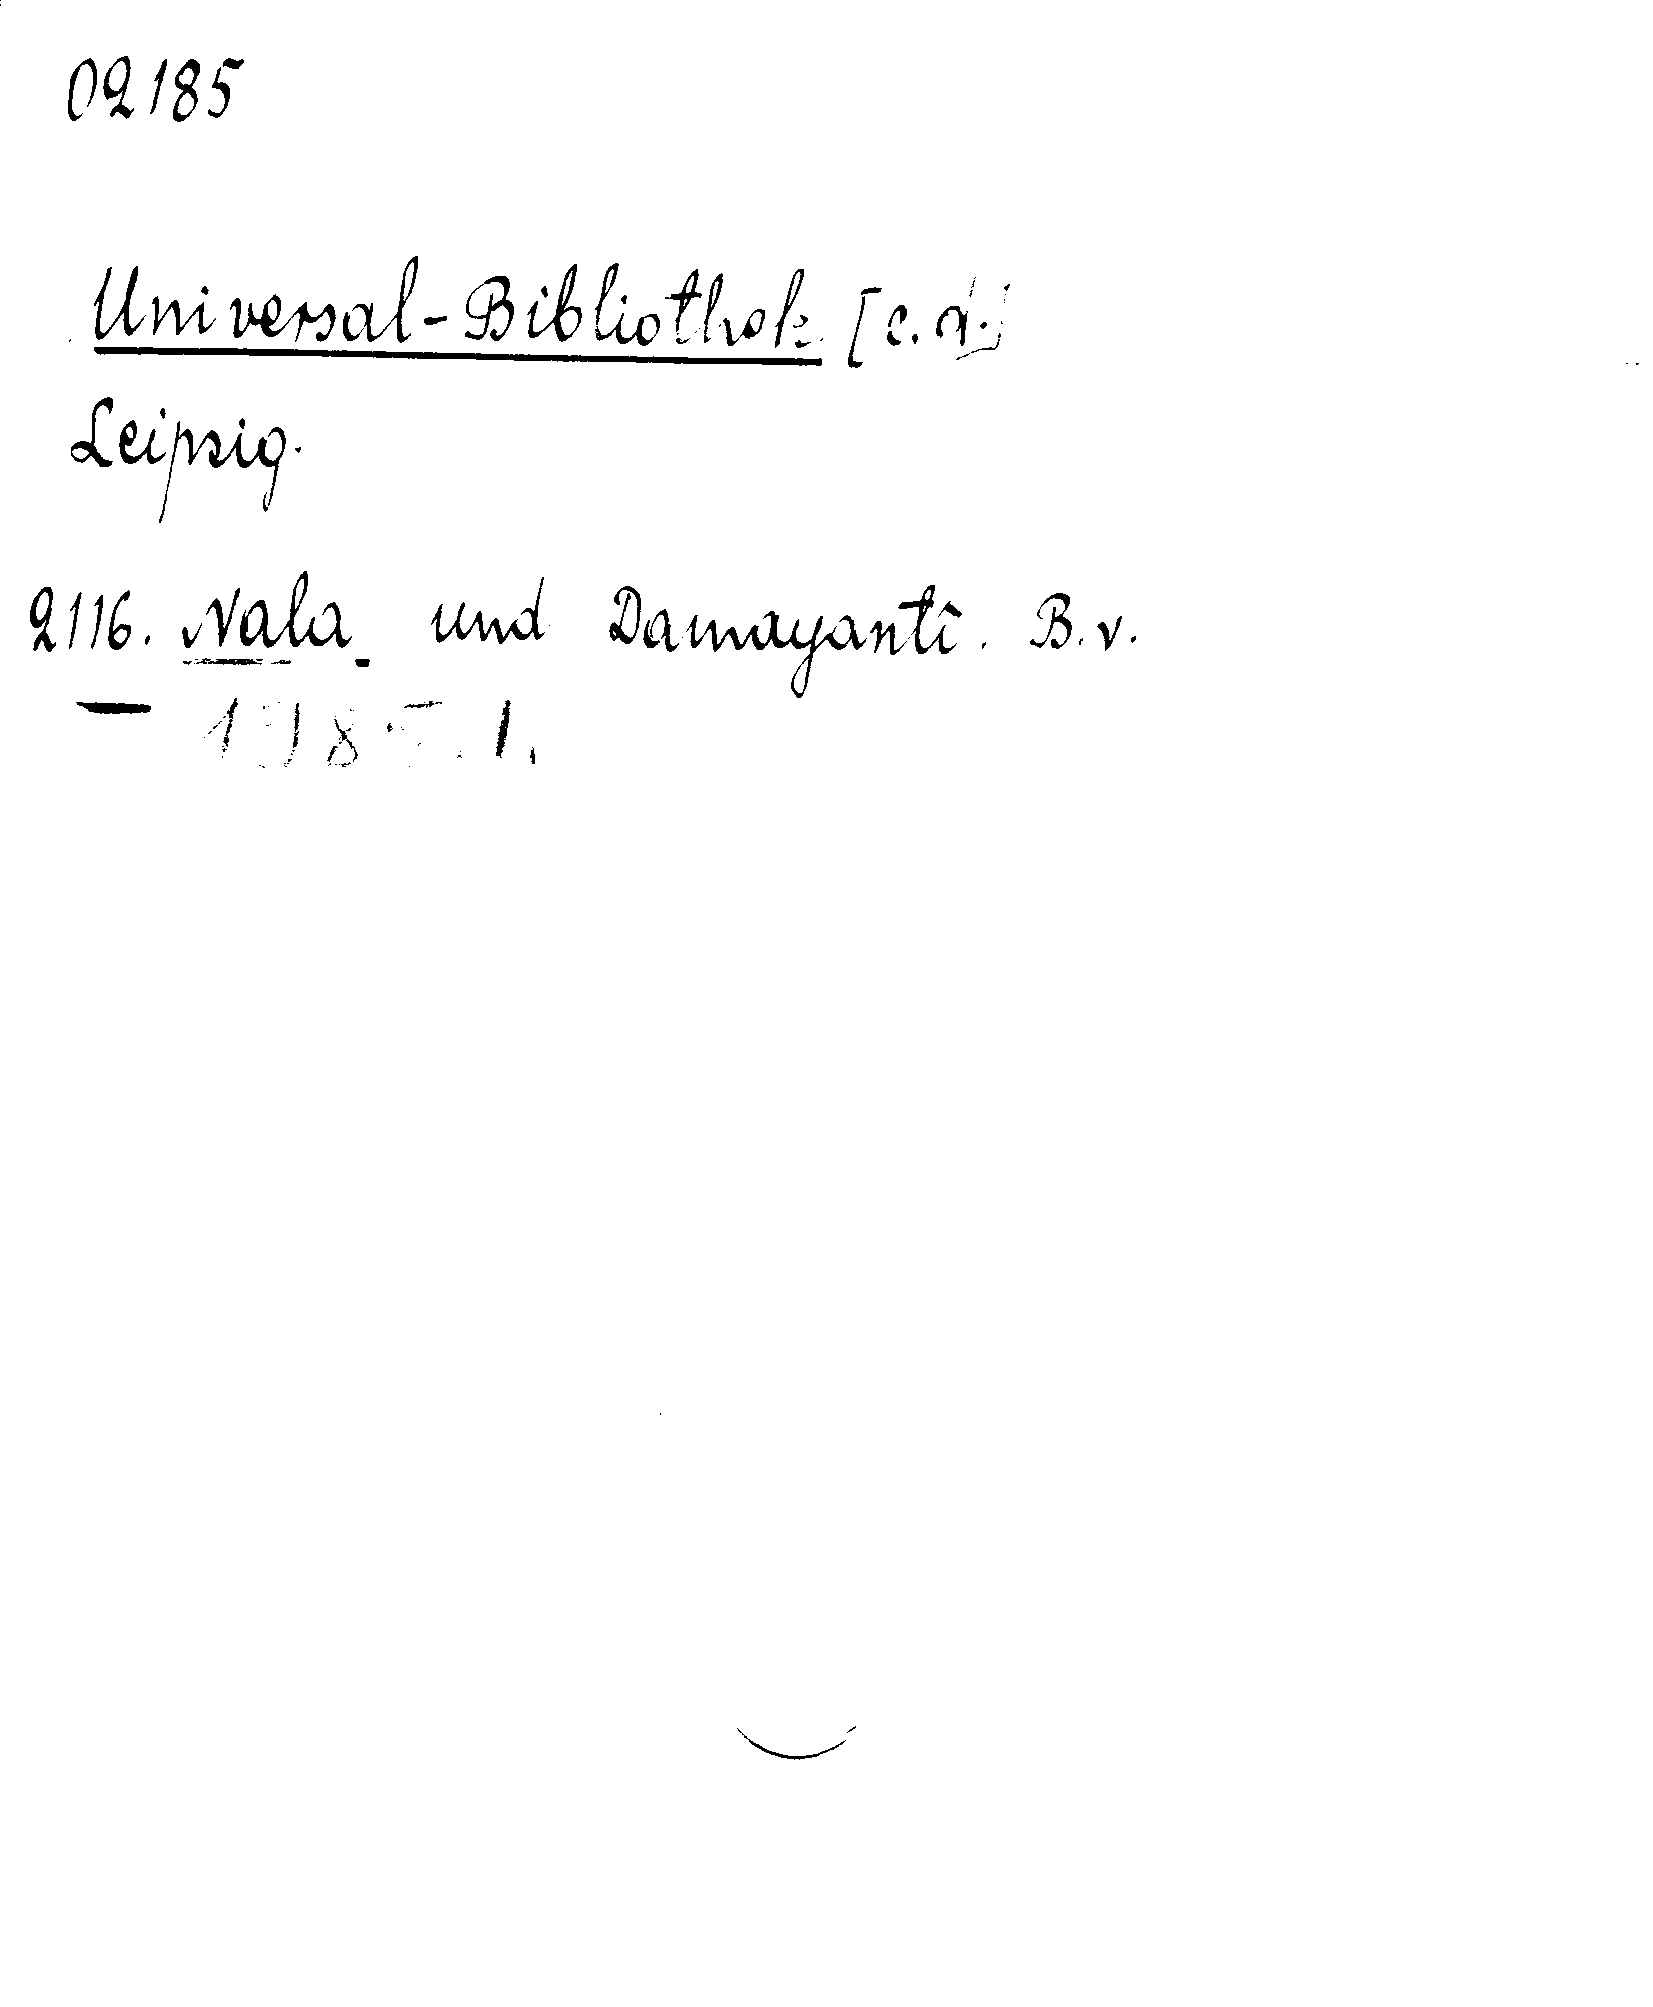 02185
Universal-Bibliothek [c.d.]
Leipsig.
2116. Nala und Damayantî. B.v.
—